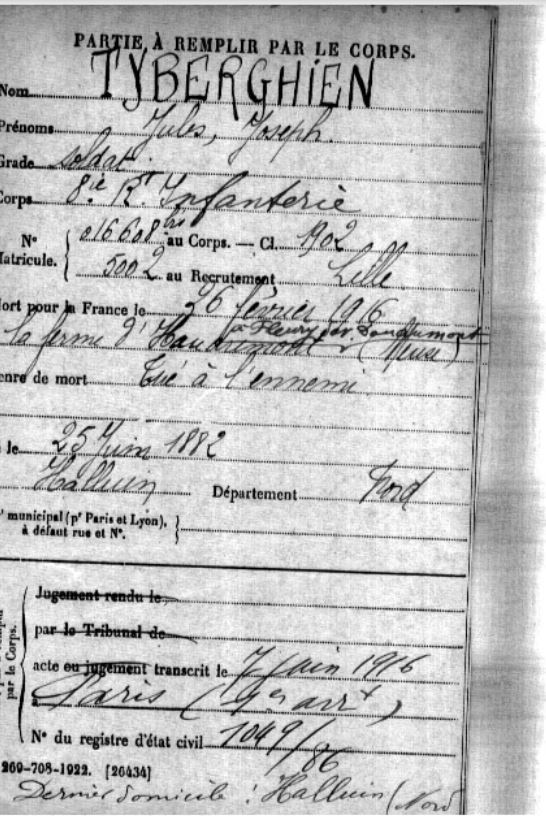 PARTIE À REMPLIR PAR LE CORPS.
Nom TYBERGHIEN
Prénoms Jules, Joseph
Grade soldat.
Corps 8.ie Rt Infanterie
No Matricule. { 016608 bis au Corps. — Cl. 1902
5002 au Recrutement Lille
Mort pour la France le 26 février 1916
la ferme d'Haudremont (Meuse)
enre de mort Tué à l'ennemi
le 25 Juin 1882
Halluin Département Nord
municipal (pr Paris et Lyon),
à défaut rue et No.
par le Corps.
Jugement rendu le
par le Tribunal de
acte ou jugement transcrit le 7 juin 1916
à Paris ( arrt )
No du registre d'état civil 1049/86
269-708-1922. [26434]
Dernier domicile : Halluin (Nord